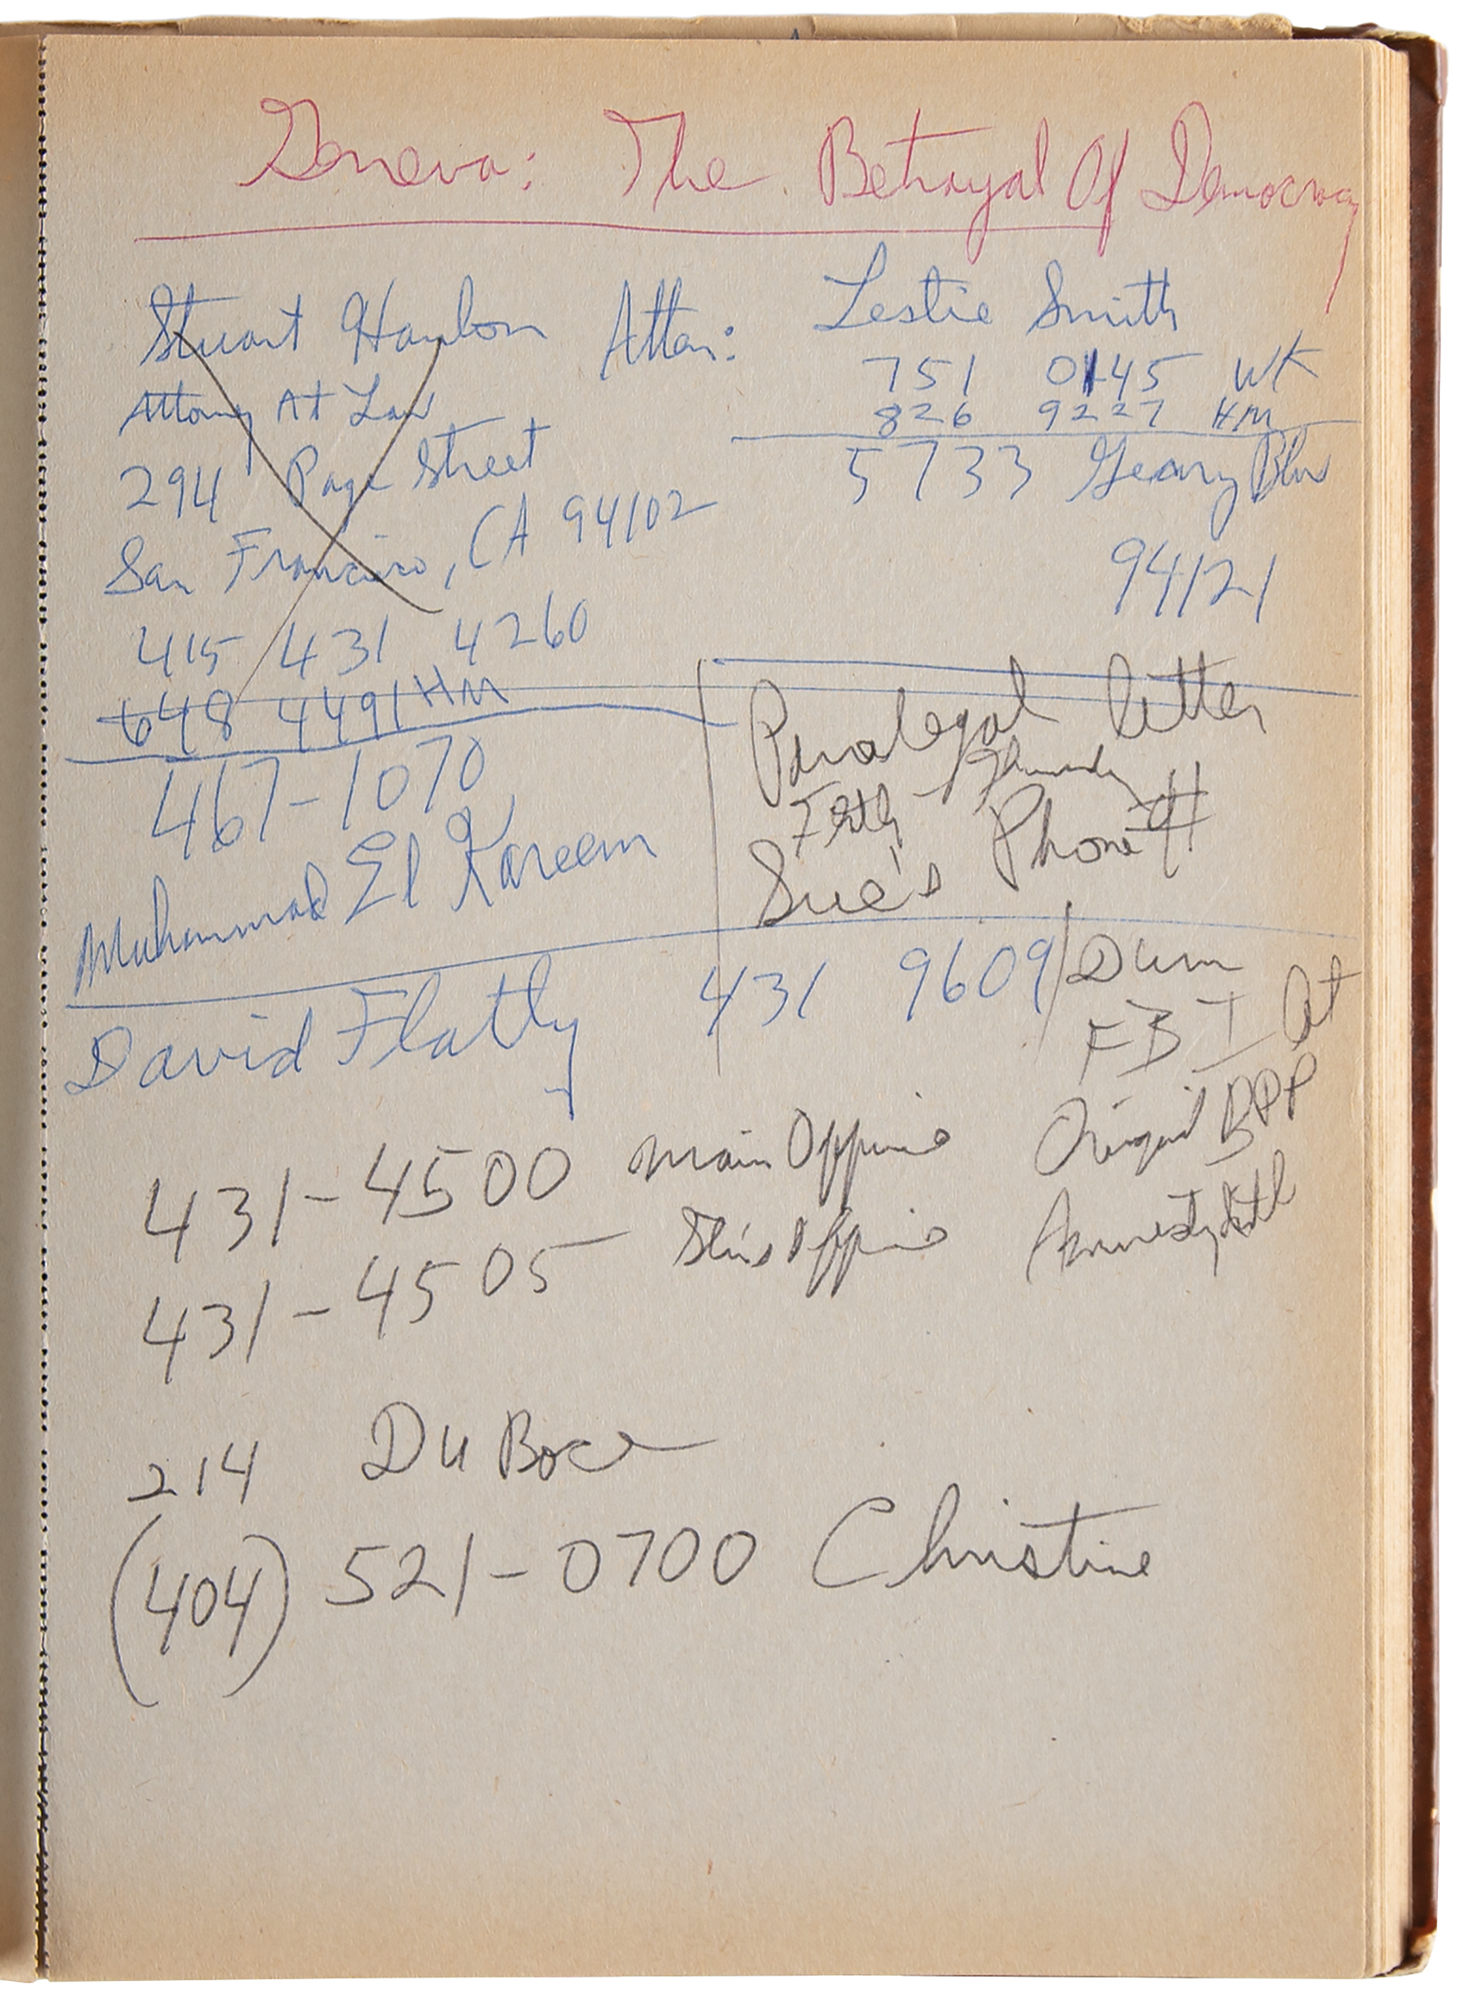 Geneva: The Betrayal Of Democracy
Stuart Hanlon Atton:
Attorney At Law
294 Page Street
San Francisco, CA 94102
415 431 4260
648 4491 HM
Leslie Smith
751 0145 WK
826 9227 HM
5733 Geary Blv
94121
467-1070
Muhammad El Kareem
Paralegal letter
Sue's Phone #
David Flatly 431 9609
Dum
FBI at
Original BPP
Amnesty Intl
431-4500 Main Office
431-4505 Stu's Office
214 Du Boce
(404) 521-0700 Christine